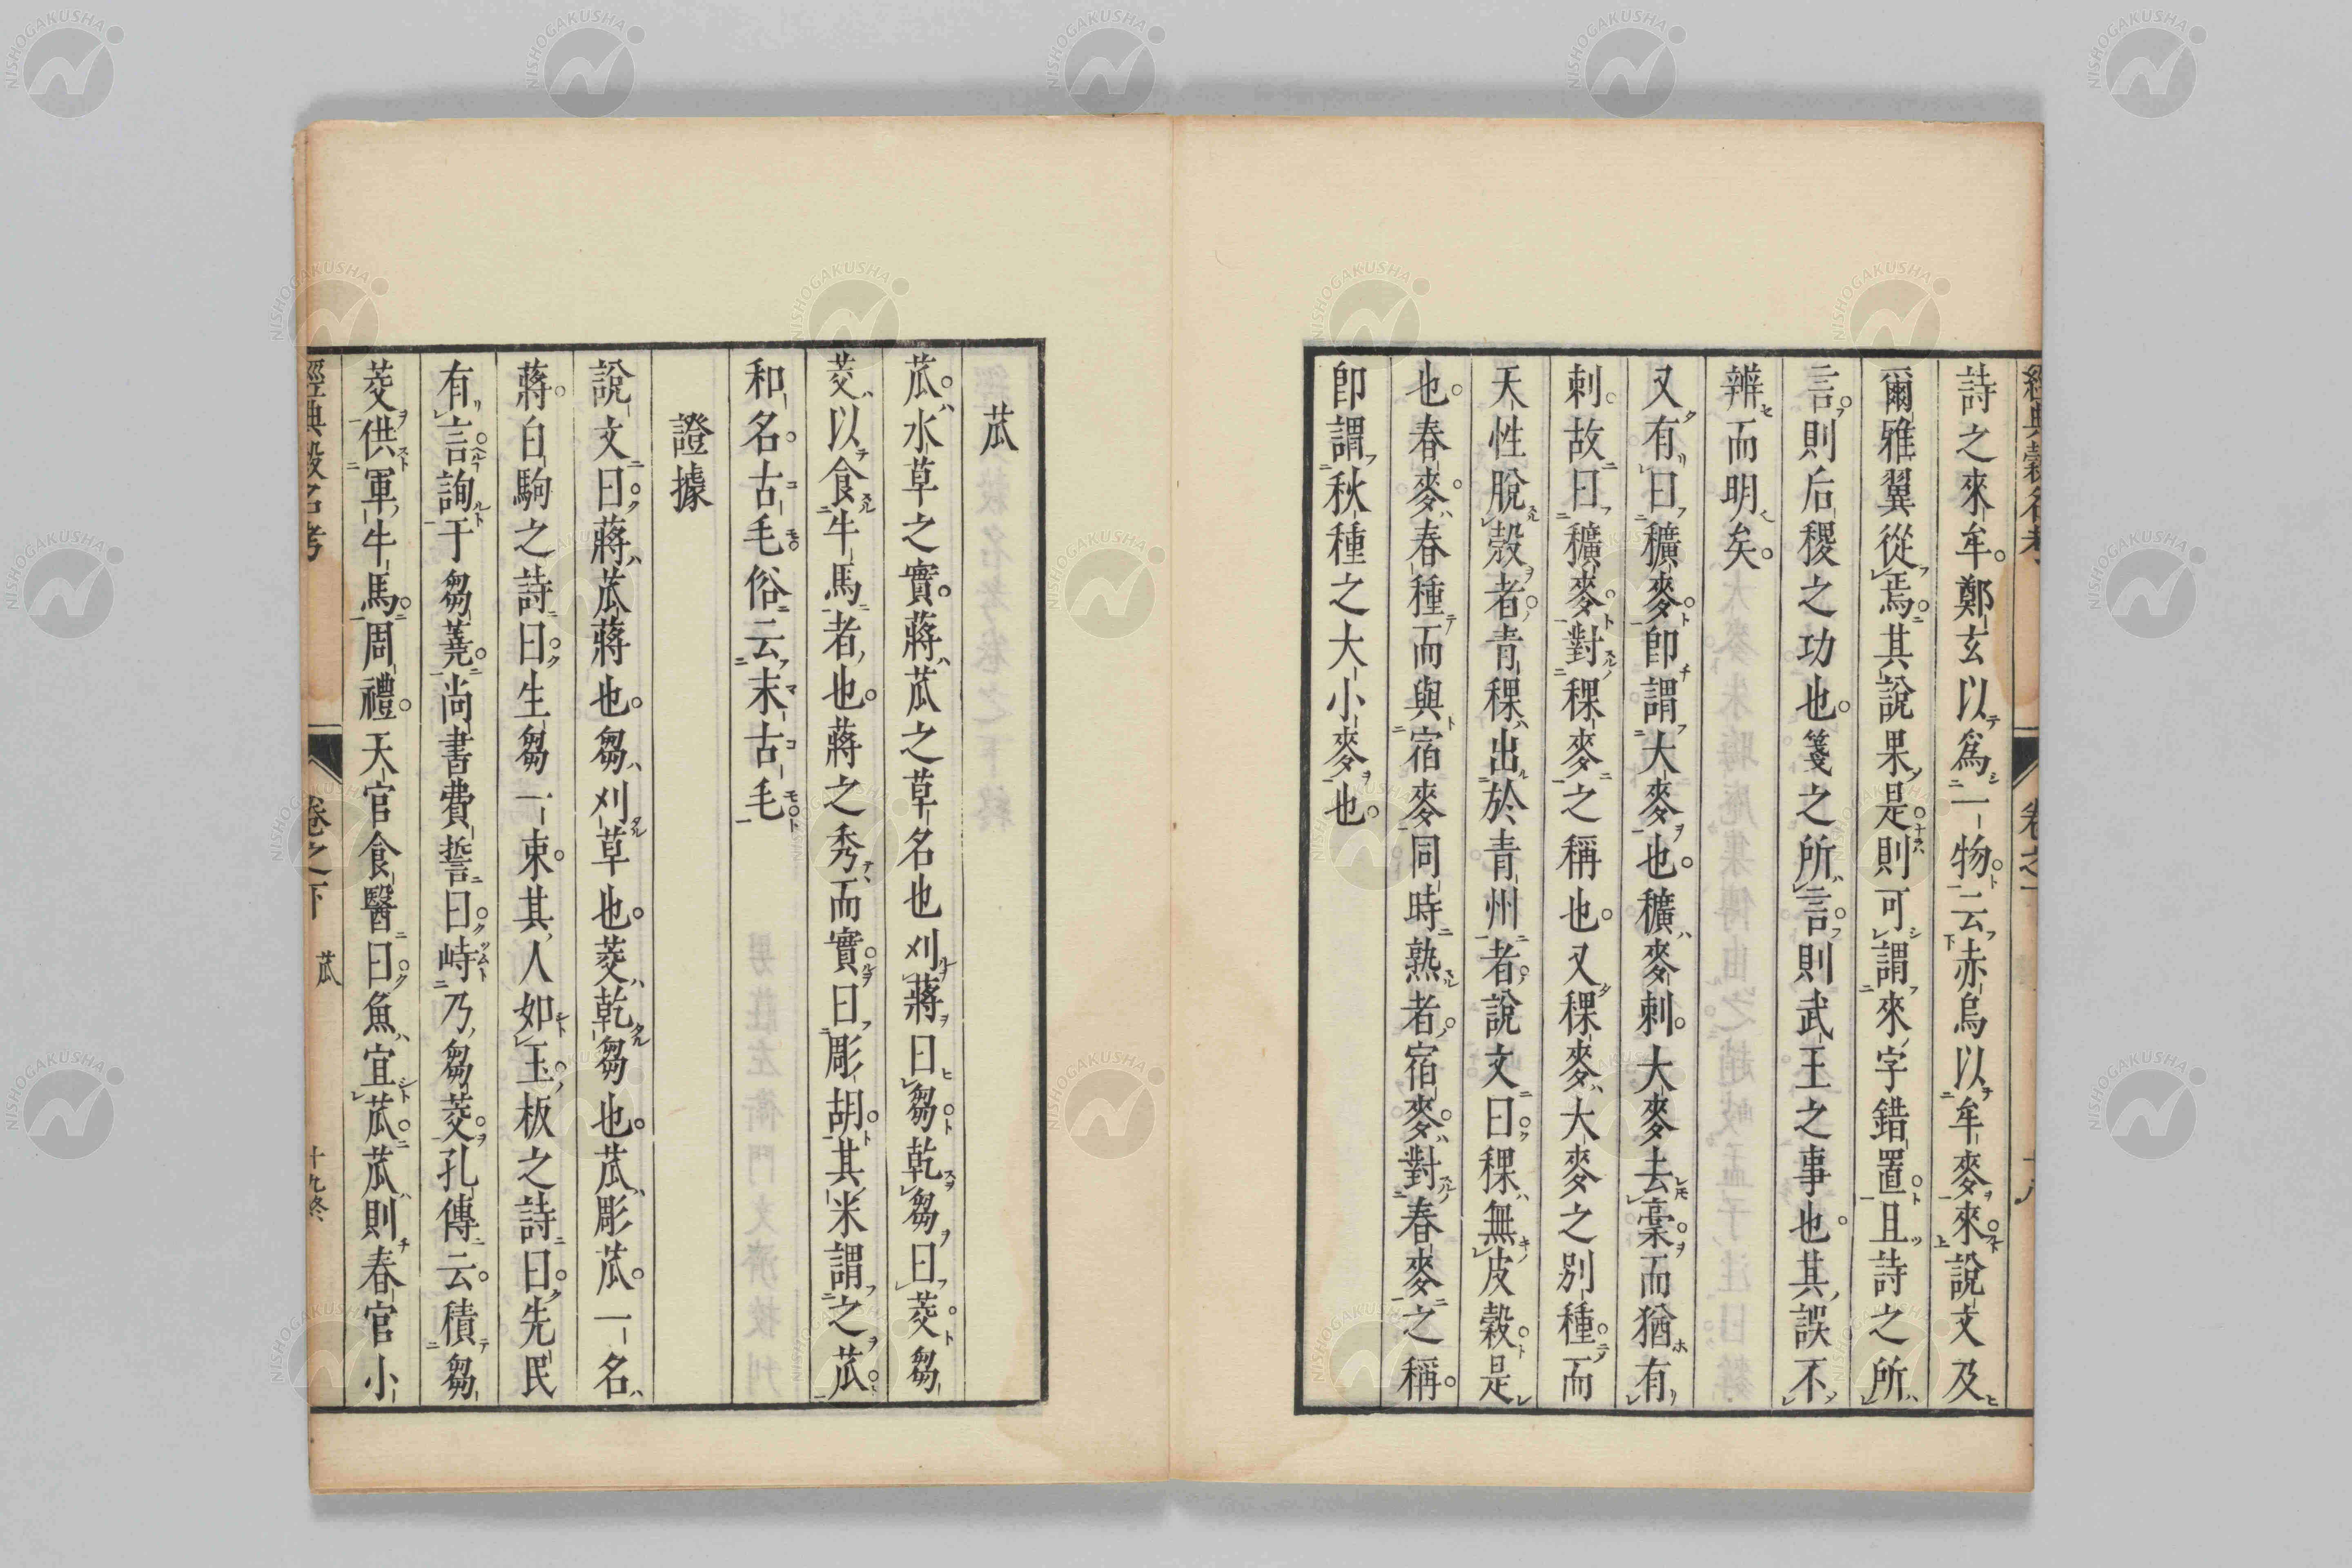 詩之來牟鄭玄以爲一物云赤烏以牟麥來說文及
爾雅翼從焉其說果是則可謂來字錯置且詩之所
言則后稷之功也箋之所言則武王之事也其誤不
辨而明矣
又有曰穬麥卽謂大麥也穬麥刺大麥去稾而猶有
刺故曰穬麥對稞麥之稱也又稞麥大麥之別種而
天性脫殼者青稞出於青州者說文曰稞無皮穀是
也春麥春種而與宿麥同時熟者宿麥對春麥之稱
卽謂秋種之大小麥也
苽
苽水草之實蔣苽之草名也刈蔣曰芻乾芻曰茭芻
茭以食牛馬者也蔣之秀而實曰彫胡其米謂之苽
和名古毛俗云末古毛
證據
說文曰蔣苽蔣也芻刈草也茭乾芻也苽彫苽一名
蔣白駒之詩曰生芻一束其人如玉板之詩曰先民
有言詢于芻蕘尚書費誓曰峙乃芻茭孔傳云積芻
茭供軍牛馬周禮天官食醫曰魚宜苽苽則春官小
經典穀名考 卷之下 苽 十九終
NISHOGAKUSHA